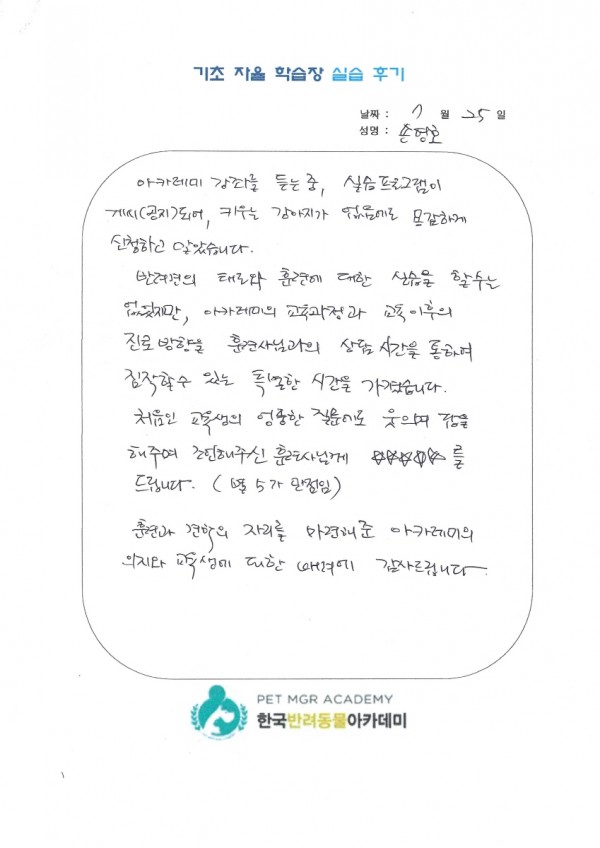 기초 자율 학습장 실습 후기
날짜 : 7 월 25 일
성명 : 손형호
아카데미 강좌를 듣는 중, 실습프로그램이
게시(공지)되어, 키우는 강아지가 없음에도 못감하게
신청하고 말았습니다.
반려견의 태도와 훈련에 대한 실습을 할수는
없었지만, 아카데미의 교육과정과 교육이후의
진로방향을 훈련사님과의 상담시간을 통하여
짐작할수 있는 특별한 시간을 가졌습니다.
처음인 교육생의 엉뚱한 질문에도 웃으며 답을
해주며 조언해주신 훈련사님께 ☆☆☆☆☆를
드립니다. (별 5가 만점임)
훈련과 견학의 자리를 마련해준 아카데미의
의지와 교육생에 대한 배려에 감사드립니다.
PET MGR ACADEMY
한국반려동물아카데미